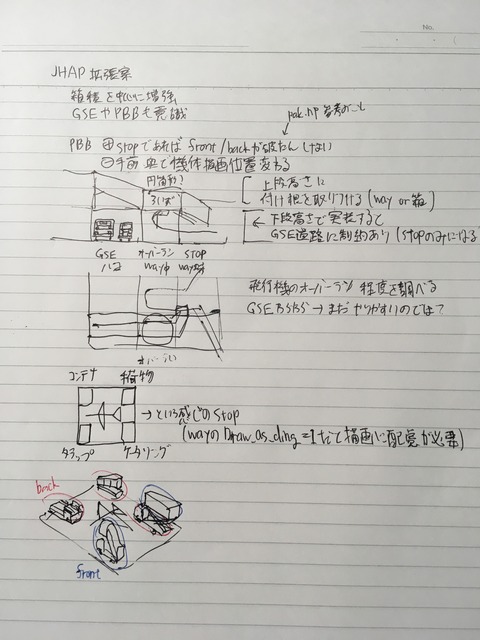 No.
JHAP 拡張案
箱積を中心に増強
GSEやPBBも意識
pak.HP 参考のこと
PBB ⊕ stopであれば front/backが破たんしない
⊖ 手前 奥で機体描画位置変わる
上段高さに
付け根を取り付ける (way or 箱)
← 下段高さで実装すると
GSE道路に制約あり (stopのみになる)
GSE オーバーラン STOP
way
飛行機のオーバーラン 程度を調べる
GSEならば → まだやりやすいのでは?
オーバーラン
コンテナ 手荷物
→ という感じのstop
(wayのDraw_as_ding=1など描画に配慮が必要)
タラップ ケータリング
back
front